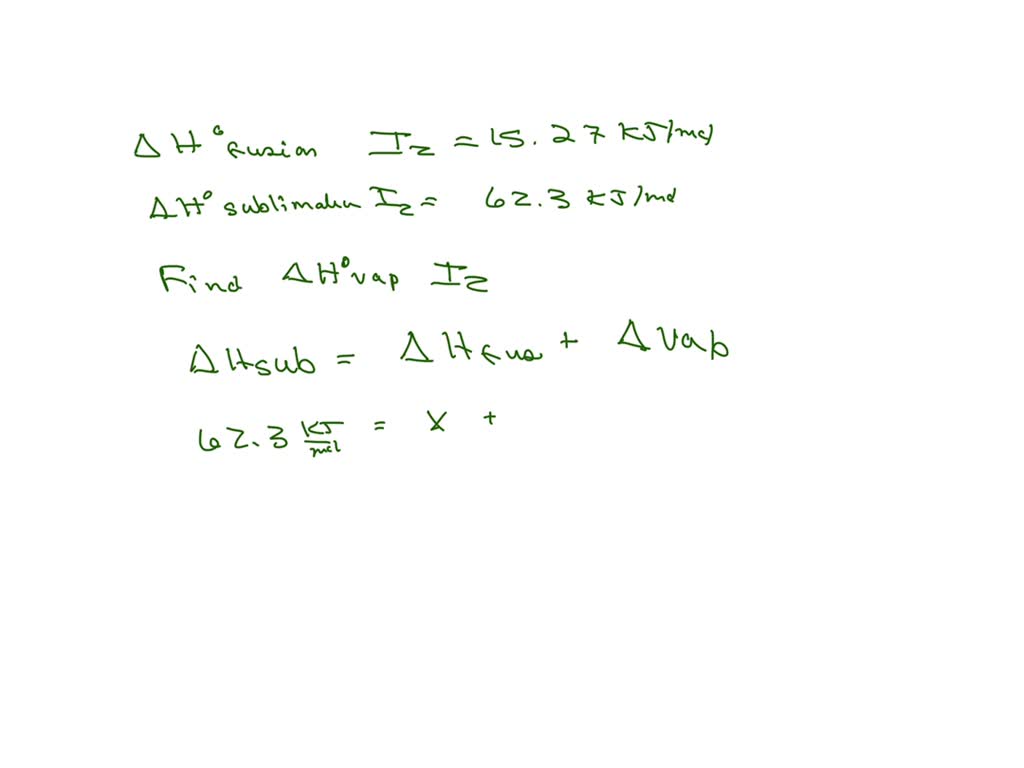 ΔH° fusion I₂ = 15.27 KJ/mol
ΔH° sublimation I₂ = 62.3 KJ/mol
Find ΔH°vap I₂
ΔHsub = ΔHfus + ΔVap
62.3 KJ/mol = X +